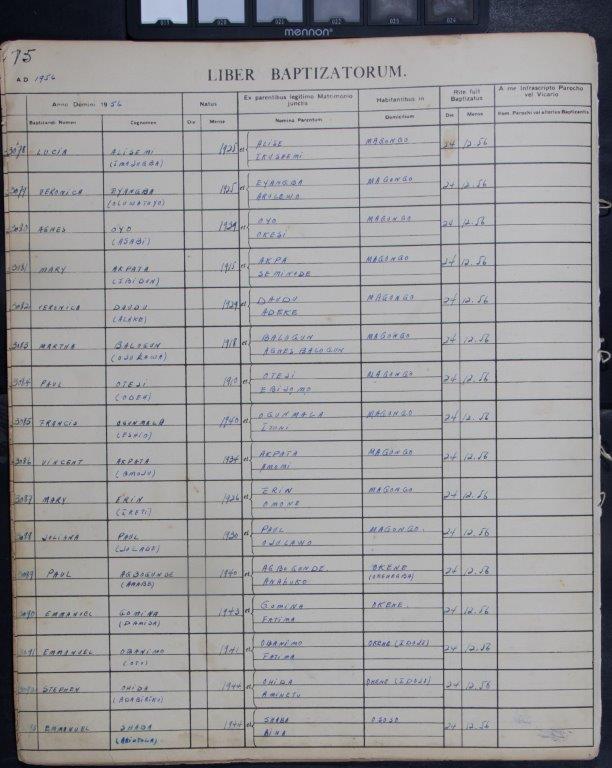 020 021 022 023 024
mennon
75
A.D. 1956
LIBER BAPTIZATORUM.
Anno Domini 1956 Natus Ex parentibus legitimo Matrimonio junctis Habitantibus in Rite fuit Baptizatus A me Infrascripto Parocho vel Vicario
Baptizandi Nomen Cognomen Die Mense Nomina Parentum Domicilium Die Mense Nom. Parochi vel alterius Baptizantis
3078 LUCIA ALISEMI 1925 et ALISE MAGONGO 24 12.56
(IMAJUGBA) IKUSEMI
3079 VERONICA EYANGBA 1925 et EYANGBA MAGONGO 24 12.56
(OLUWATOYO) AROLEWO
3080 AGNES OYO 1929 et OYO MAGONGO 24 12.56
(ASABI) OKESI
3081 MARY AKPATA 1915 et AKPA MAGONGO 24 12.56
(IBIDUN) SEMINODE
3082 VERONICA DAUDU 1929 et DAUDU MAGONGO 24 12.56
(ALAKE) ADEKE
3083 MARTHA BALOGUN 1918 et BALOGUN MAGONGO 24 12.56
AGNES BALOGUN
3084 PAUL OTESI 1910 et OTESI MAGONGO 24 12.56
(ODEH) EBIJOMO
3085 FRANCIS OGUNMALA 1940 et OGUNMALA MAGONGO 24 12.56
(ESHIO) ITONI
3086 VINCENT AKPATA 1934 et AKPATA MAGONGO 24 12.56
(OMOJU) AMOMI
3087 MARY ERIN 1926 et ERIN MAGONGO 24 12.56
(IRETI) OMONE
3088 JULIANA PAUL 1930 et PAUL MAGONGO. 24 12.56
(JOLADE) OJULAWO
3089 PAUL AGBOGUNDE 1940 et AGBOGUNDE. OKENE 24 12.56
(ARABE) ANABUKO (OKENEGBA)
3090 EMMANUEL GOMINA 1943 et GOMINA OKENE. 24 12.56
(DAMISA) FATIMA
3091 EMMANUEL OBANIMO 1941 et OBANIMO OKENE (IDOJI) 24 12.56
(OTO) FATIMA
STEPHEN OHIDA 1944 et OHIDA OKENE (IDOJI) 24 12.56
(ADABIRIKO) AMINETU
EMMANUEL SHABA 1944 et SHABA OSOSO 24 12.56
(ABIODOLA) AINA